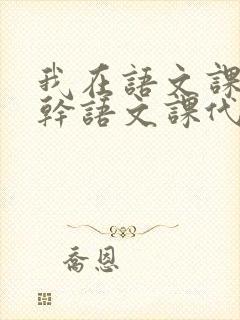 我在語文課
幹語文課代
喬恩